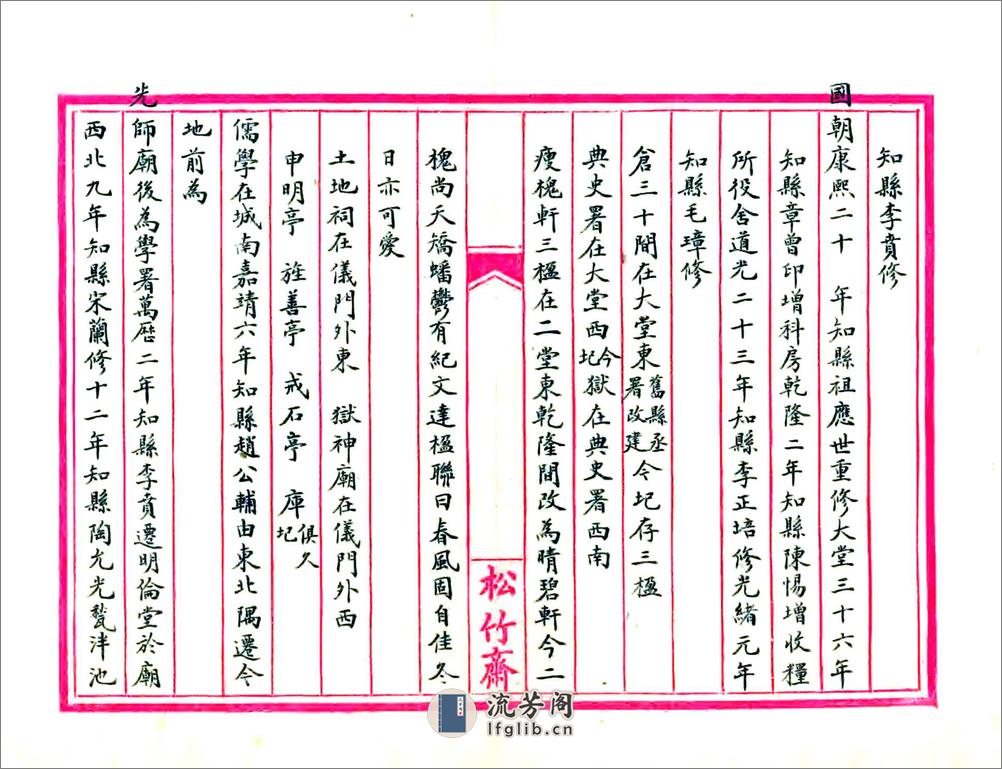 知縣李賁修
國朝康熙二十　年知縣祖應世重修大堂三十六年
知縣章曾印增科房乾隆二年知縣陳惕增收糧
所役舍道光二十三年知縣李正培修光緒元年
知縣毛璋修
倉三十間在大堂東舊縣丞署改建今圮存三楹
典史署在大堂西今圮獄在典史署西南
瘦槐軒三楹在二堂東乾隆間改為晴碧軒今二
槐尚夭矯蟠鬱有紀文達楹聯曰春風固自佳冬
日亦可愛
土地祠在儀門外東　獄神廟在儀門外西
申明亭　旌善亭　戒石亭　庫俱久圮
儒學在城南嘉靖六年知縣趙公輔由東北隅遷今
地前為
先師廟後為學署萬歷二年知縣李賁遷明倫堂於廟
西北九年知縣宋蘭修十二年知縣陶允光甃泮池
松竹齋
流芳阁
lfglib.cn